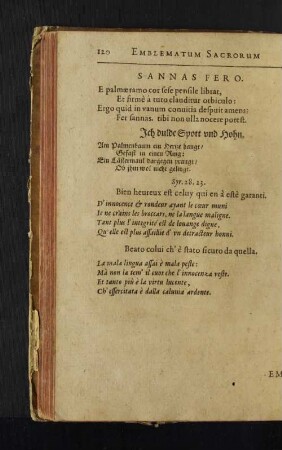 120 EMBLEMATUM SACRORUM
SANNAS FERO.
E palmæ ramo cor sese pensile librat,
Et firmè à tuto clauditur orbiculo:
Ergo quid in vanum convitia despuit amens?
Fer sannas. tibi non olla nocere potest.
Ich dulde Spott und Hohn.
Am Palmenbaum ein Hertze hangt/
Gefast in einen Ring:
Ein Lästermaul dargegen
Ob ihm wol nicht gelingt.
Syr. 28. 23.
Bien heureux est celuy qui en à esté garanti.
D' innocence & rondeur ayant le cœur muni
Je ne crains les broccars, ne la langue maligne.
Tant plus l' integrité est de louange digne,
Qu' elle est plus assaillie d' un detracteur honni.
Beato colui ch' è stato sicuro da quella.
La mala lingua assai è mala peste:
Mà non la tem' il cuor che l' innocenza veste.
Et tanto più è la virtu lucente,
Ch' essercitata è dalla calunia ardente.
EM